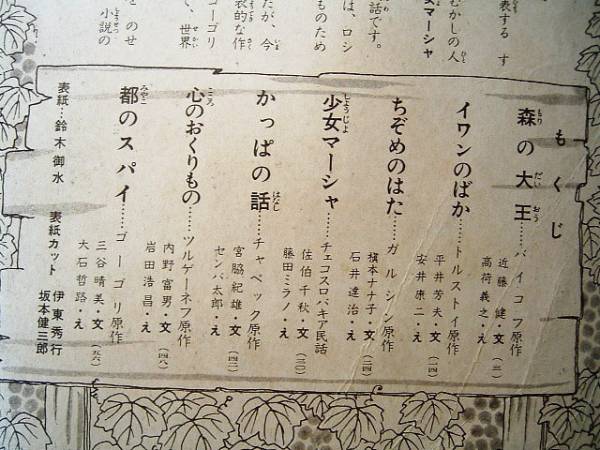 表する す
むかしの人
女マーシャ
話です。
は、ロシ
ものため
だが、今
表的な作
ゴーゴリ
て、世界
をのせ
小説の
もくじ
森の大王……バイコフ原作
近藤健・文
高荷義之・え
(三)
イワンのばか……トルストイ原作
平井芳夫・文
安井康二・え
(一四)
ちぞめのはた……ガルシン原作
槇本ナナ子・文
石井達治・え
(二四)
少女マーシャ……チェコスロバキア民話
佐伯千秋・文
藤田ミラノ・え
(三〇)
かっぱの話……チャペック原作
宮脇紀雄・文
センバ太郎・え
(四二)
心のおくりもの……ツルゲーネフ原作
内野富男・文
岩田浩昌・え
(四八)
都のスパイ……ゴーゴリ原作
三谷晴美・文
大石哲路・え
(五六)
表紙…鈴木御水
表紙カット
伊東秀行
坂本健三郎